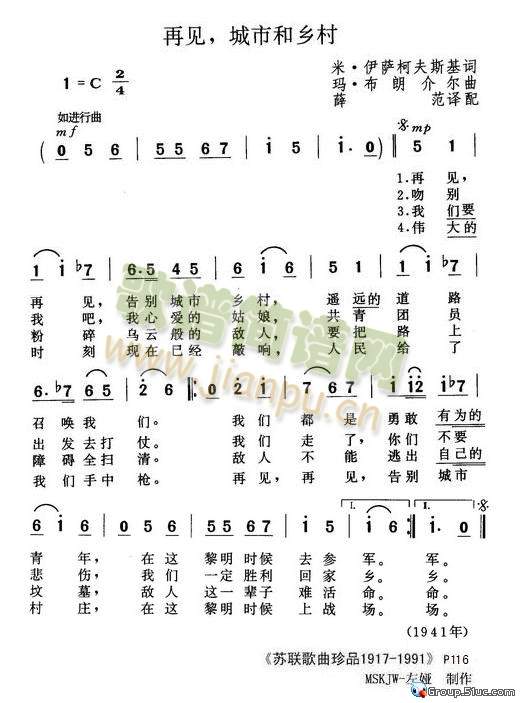 再见，城市和乡村
1=C 2/4
米·伊萨柯夫斯基词
玛·布朗介尔曲
薛 范译配
如进行曲
mf
mp
( 0 5 6 | 5 5 6 7 | i 5 | i. 0 ) ‖ 5 1 |
1.再见，
2.吻别
3.我们要
4.伟大的
1 i ♭7 | 6. 5 4 5 | 6 i 6 | 1 5 |
再见，告别城市乡村，遥远的道路
我吧，我心爱的姑娘，共青团员
粉碎乌云般的敌人，要把路上
时刻现在已经敲响，人民给了
6. ♭7 6 5 | 2 6 :‖ 0 2 i | 7 6 7 | i i2 | i ♭7
召唤我们。我们都是勇敢有为的
出发去打仗。我们走了，你们不要
障碍全扫清。敌人不能逃出自己的
我们手中枪。再见，再见，告别城市
6 i 6 | 0 5 6 | 5 5 6 7 | i 5 | i. 0 :‖ i. 0 ‖
1.
1.
青年，在这黎明时候去参军。军。
悲伤，我们一定胜利回家乡。乡。
坟墓，敌人这一辈子难活命。命。
村庄，在这黎明时候上战场。场。
(1941年)
《苏联歌曲珍品1917-1991》 P116
MSKJW-左娅 制作
歌谱简谱网
www.jianpu.cn
Group.5iuc.com